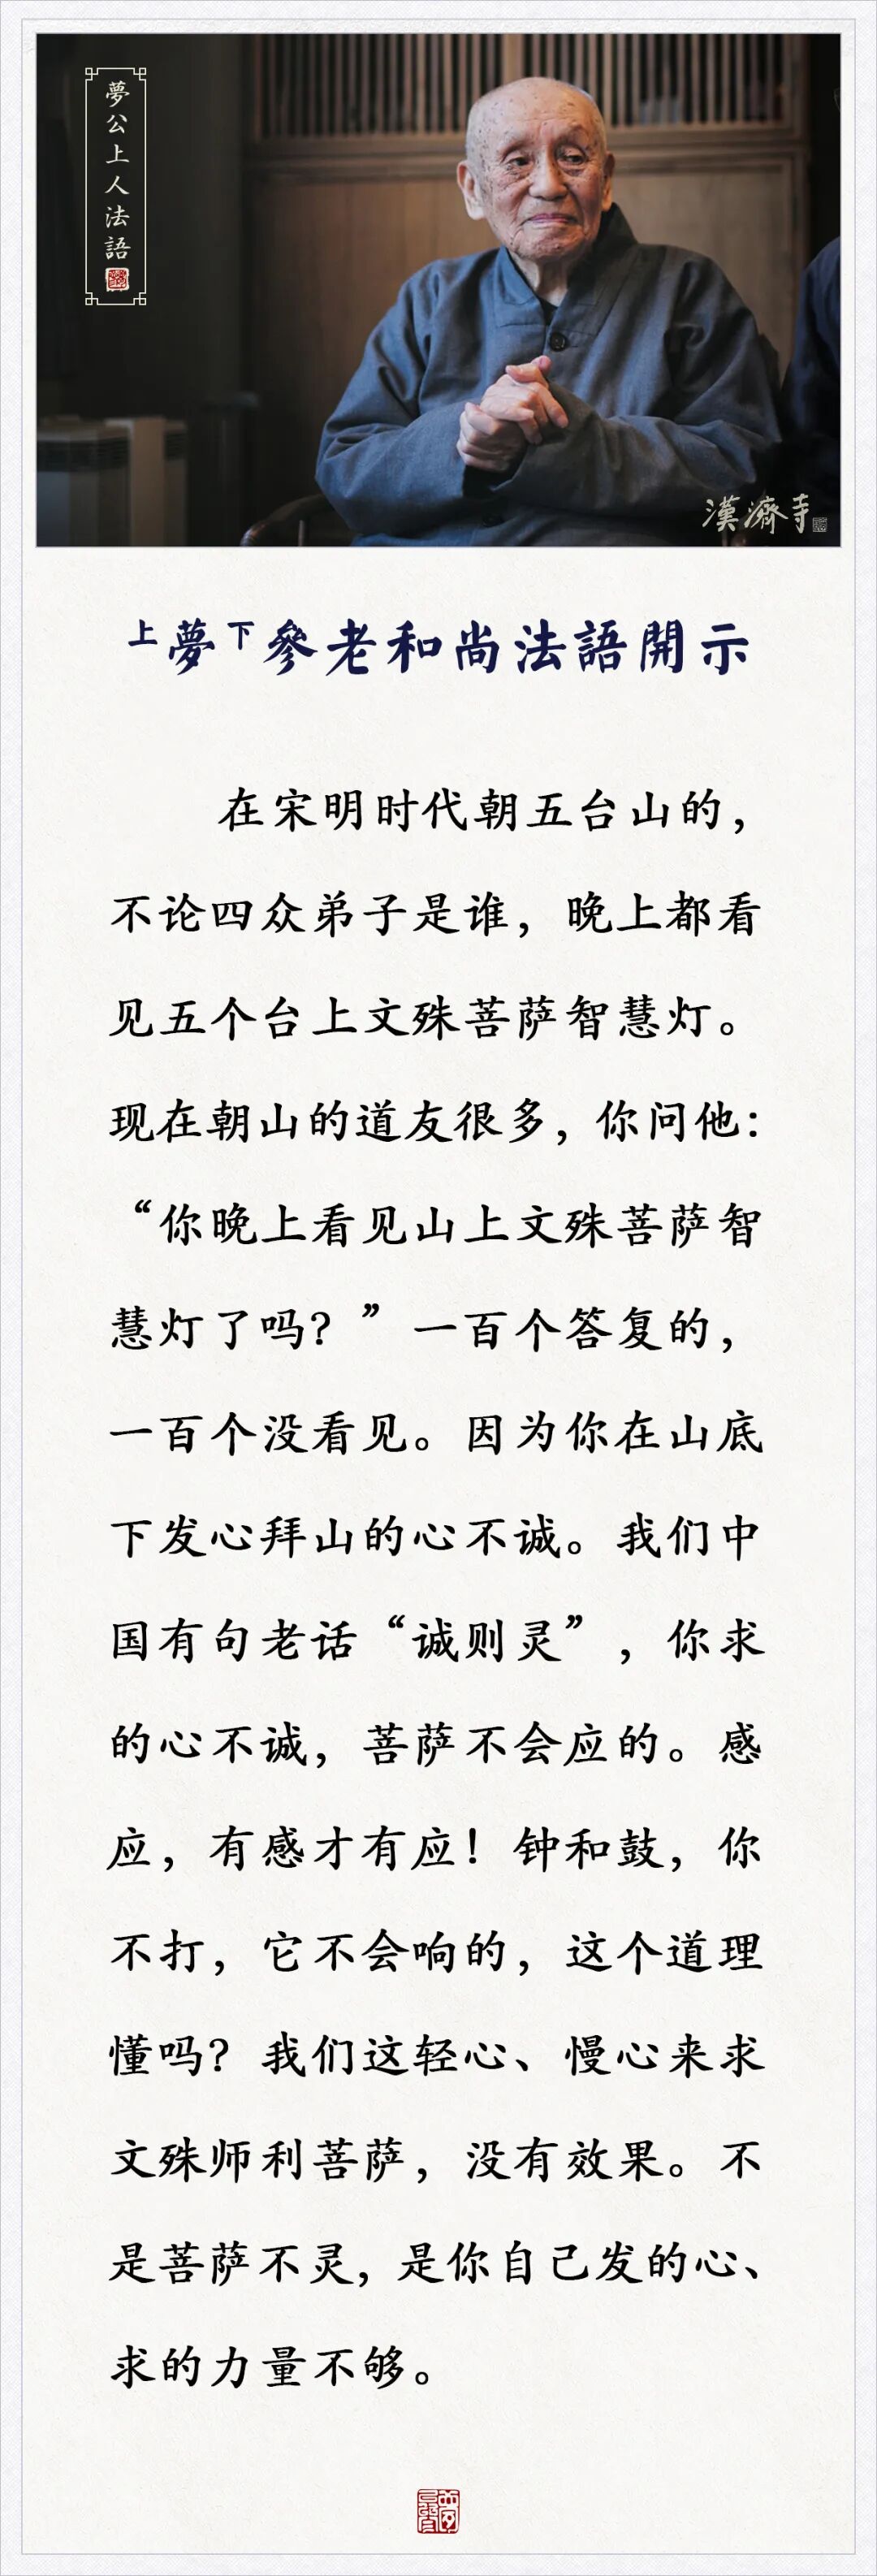 夢公上人法語
漢濟寺
上夢下參老和尚法語開示
在宋明时代朝五台山的，
不论四众弟子是谁，晚上都看
见五个台上文殊菩萨智慧灯。
现在朝山的道友很多，你问他：
“你晚上看见山上文殊菩萨智
慧灯了吗？”一百个答复的，
一百个没看见。因为你在山底
下发心拜山的心不诚。我们中
国有句老话“诚则灵”，你求
的心不诚，菩萨不会应的。感
应，有感才有应！钟和鼓，你
不打，它不会响的，这个道理
懂吗？我们这轻心、慢心来求
文殊师利菩萨，没有效果。不
是菩萨不灵，是你自己发的心、
求的力量不够。